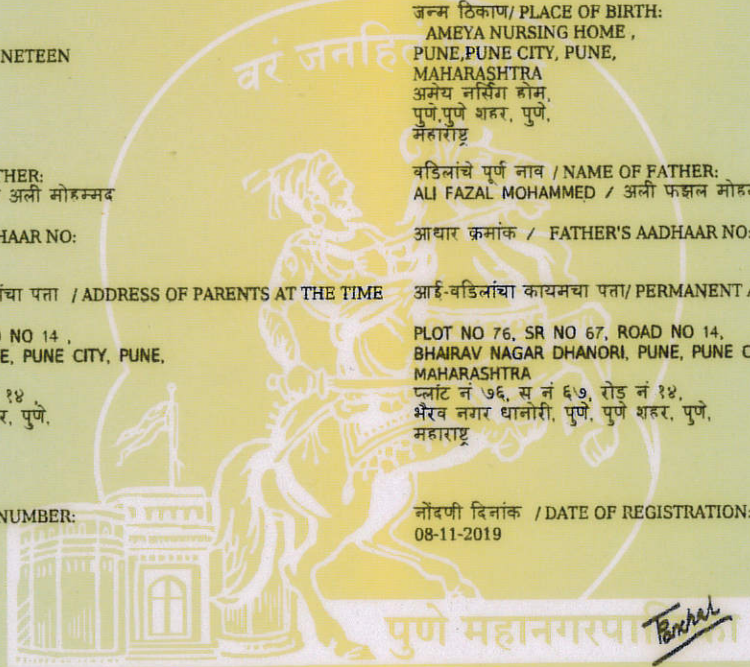 NETEEN
THER:
अली मोहम्मद
HAAR NO:
चा पत्ता / ADDRESS OF PARENTS AT THE TIME
NO 14 ,
E, PUNE CITY, PUNE,
१४ ,
र, पुणे,
NUMBER:
वरं जनहि
जन्म ठिकाण/ PLACE OF BIRTH:
AMEYA NURSING HOME ,
PUNE,PUNE CITY, PUNE,
MAHARASHTRA
अमेय नर्सिंग होम,
पुणे,पुणे शहर, पुणे,
महाराष्ट्र
वडिलांचे पूर्ण नाव / NAME OF FATHER:
ALI FAZAL MOHAMMED / अली फझल मोहम
आधार क्रमांक / FATHER'S AADHAAR NO:
आई-वडिलांचा कायमचा पत्ता/ PERMANENT A
PLOT NO 76, SR NO 67, ROAD NO 14,
BHAIRAV NAGAR DHANORI, PUNE, PUNE C
MAHARASHTRA
प्लॉट नं ७६, स नं ६७, रोड नं १४,
भैरव नगर धानोरी, पुणे, पुणे शहर, पुणे,
महाराष्ट्र
नोंदणी दिनांक / DATE OF REGISTRATION:
08-11-2019
पुणे महानगरपा